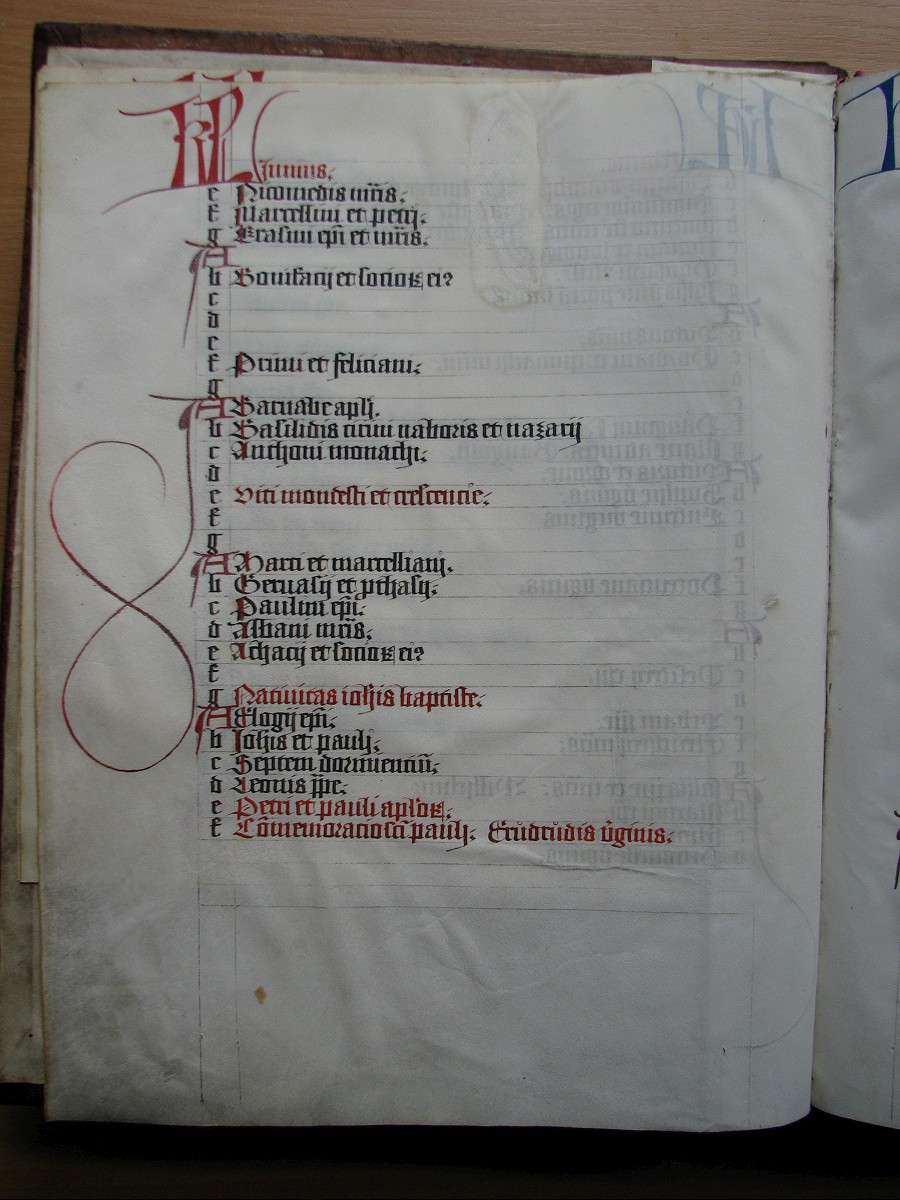 KL Junius.
e Nicomedis mr̄is.
f Marcellini et petri.
g Erasmi ep̄i et mr̄is.
A
b Bonifacij et socioꝝ eiꝰ
c
d
e
f Primi et feliciani.
g
A Barnabe apl̄i.
b Basilidis cirini naboris et nazarij
c Anthoni monachi.
d
e Viti modesti et crescencie.
f
g
A Marci et marcelliani.
b Geruasij et ꝓthasij.
c Paulini ep̄i.
d Albani mr̄is.
e Achacij et socioꝝ eiꝰ
f
g Natiuitas ioh̄is baptiste.
A Elogij ep̄i.
b Joh̄is et pauli.
c Septem dormienciū.
d Leonis pp̄e.
e Petri et pauli apl̄oꝝ.
f Cōmemoracio sc̄i pauli. Erůdrůdis v̓ginis.